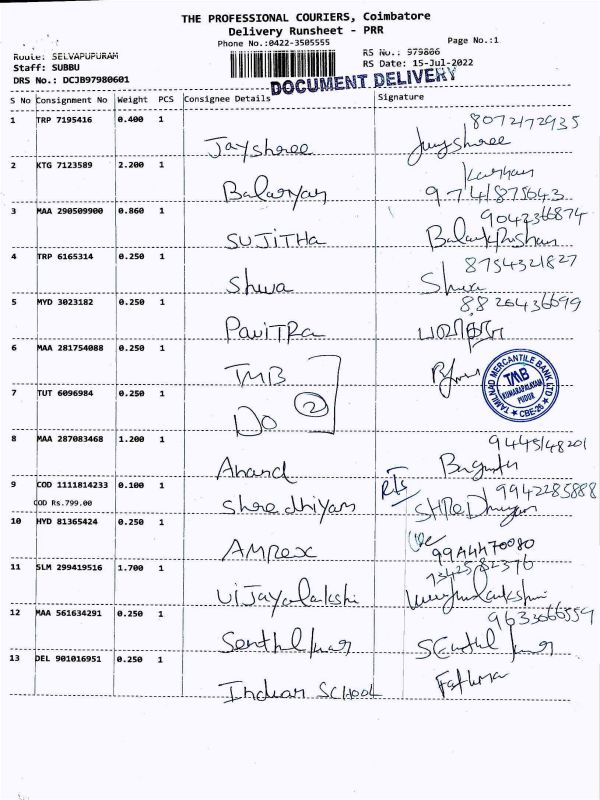 THE PROFESSIONAL COURIERS, Coimbatore
Delivery Runsheet - PRR
Phone No.:0422-3505555 Page No.:1
Route: SELVAPUPURAM RS No.: 979806
Staff: SUBBU RS Date: 15-Jul-2022
DRS No.: DCJB97980601 DOCUMENT DELIVERY
S No Consignment No Weight PCS Consignee Details Signature
1 TRP 7195416 0.400 1 8072472935
Jayshree Jayshree
2 KTG 7123589 2.200 1
9741875043
3 MAA 290509900 0.860 1 9042366874
SUJITHA
4 TRP 6165314 0.250 1 8754321827
Shiva Shiva
5 MYD 3023182 0.250 1 8826436699
PAVITRA
6 MAA 281754088 0.250 1
TMB
TAMILNAD MERCANTILE BANK LTD TMB KUMARAPALAYAM PUDUR CBE-26
7 TUT 6096984 0.250 1
DO 2
8 MAA 287083468 1.200 1 9445148201
Anand
9 COD 1111814233 0.100 1 RTS 9942285888
COD Rs.799.00
10 HYD 81365424 0.250 1
AMPEX
11 SLM 299419516 1.700 1
Vijayalakshi
12 MAA 561634291 0.250 1 9633066559
Senthil kumar Senthil kumar
13 DEL 901016951 0.250 1
Indian SCHOOL Fathima